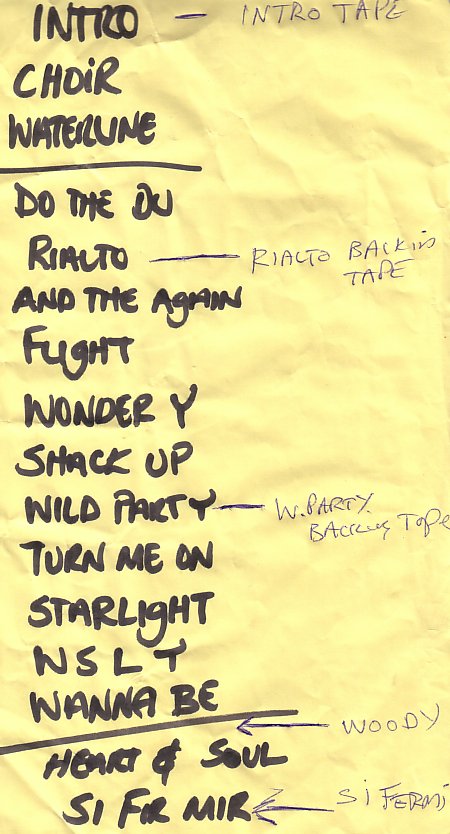 INTRO — INTRO TAPE
CHOIR
WATERLINE
DO THE DU
RIALTO — RIALTO BACKIN
TAPE
AND THE AGAIN
FLIGHT
WONDER Y
SHACK UP
WILD PARTY — W. PARTY.
BACKING TAPE
TURN ME ON
STARLIGHT
N S L Y
WANNA BE
WOODY
HEART & SOUL
SI FIR MIR SI FERMI